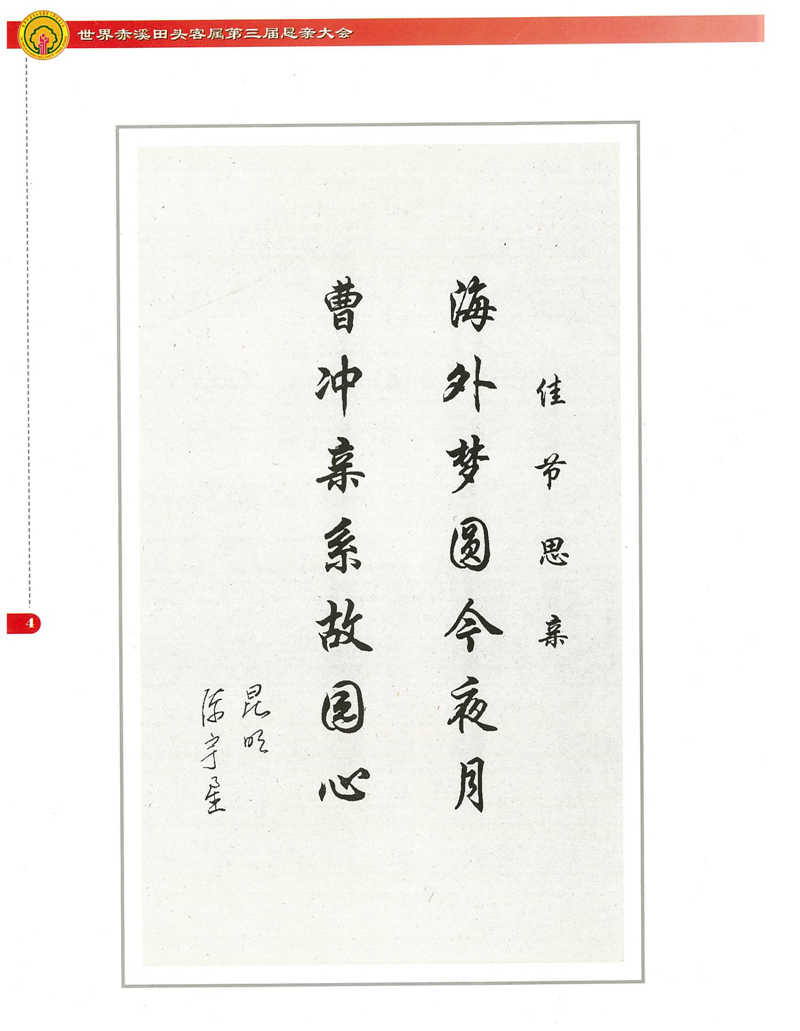 世界赤溪田头客属第三届恳亲大会
佳节思亲
海外梦圆今夜月
曹冲亲系故园心
昆明
4